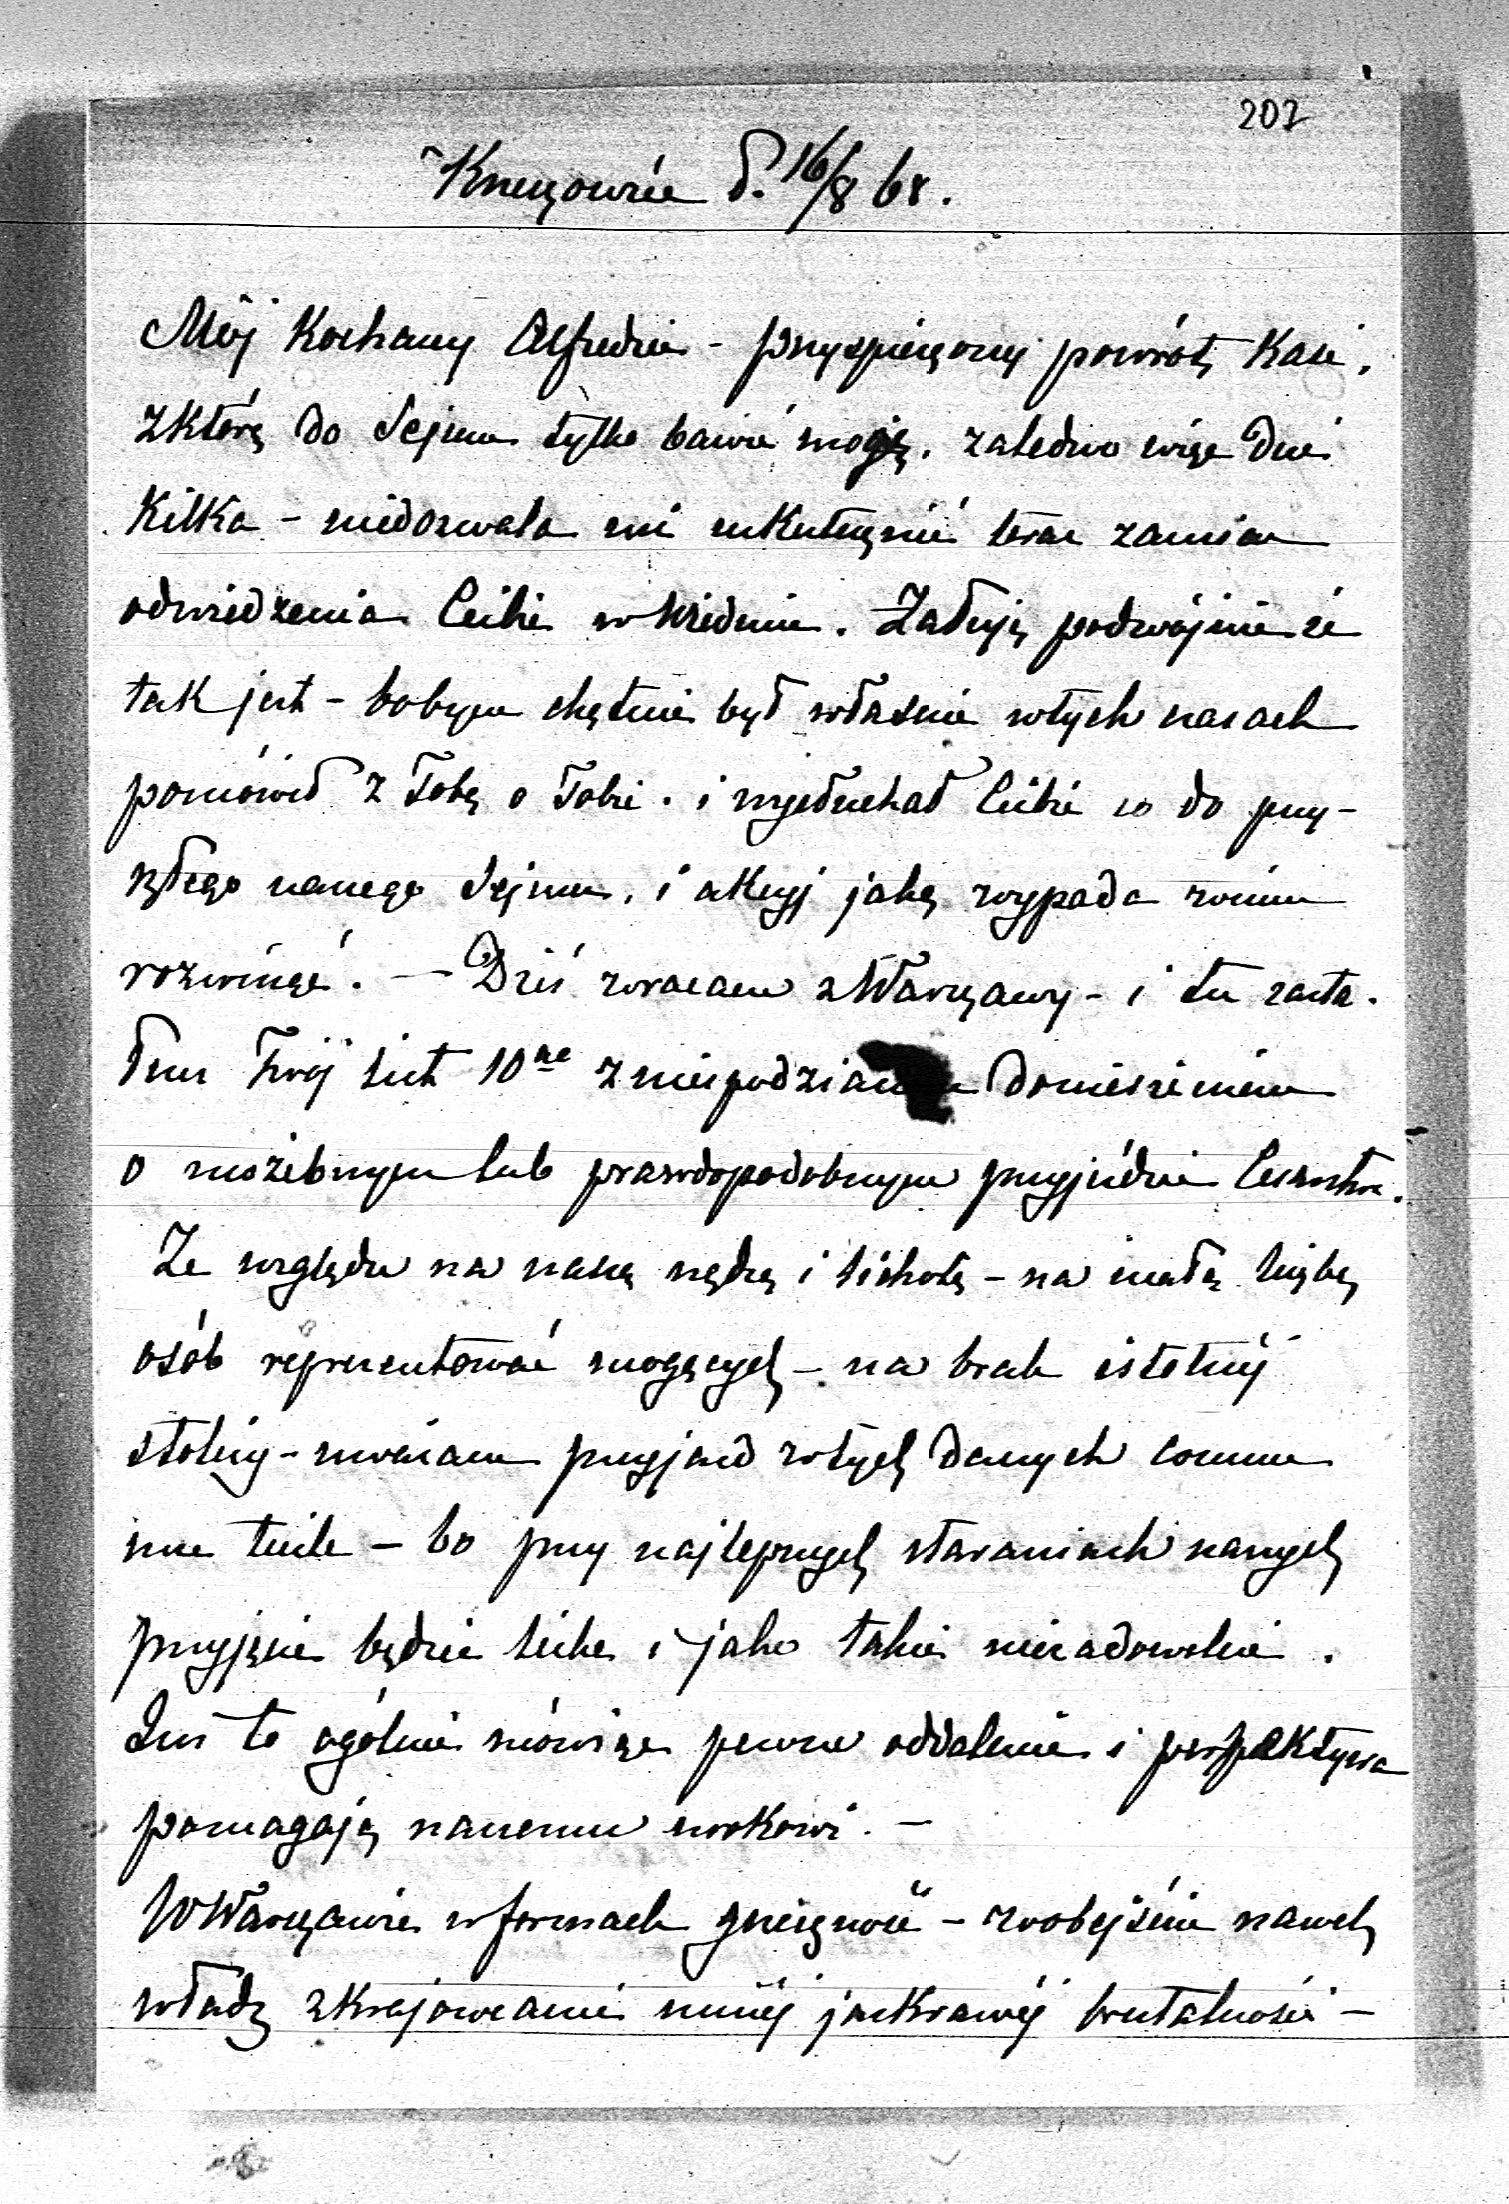 207
Krzeszowice d. 16/8 68.
Mój Kochany Alfredzie - przyspieszony powrót Kasi,
z którą do Sejmu tylko bawić mogę, zaledwo więc dni
Kilka - niedozwala mi uskutecznić teraz zamiar
odwiedzenia Ciebie w Wiedniu. Żałuję podwójnie że
tak jest - bobym chętnie był właśnie w tych czasach
pomówił z Tobą o Tobie. i wysłuchał Ciebie co do przy-
szłego naszego Sejmu, i akcyj jaką wypada w nim
rozwinąć. — Dziś wracam z Warszawy - i tu zasta-
łem Twój list 10go z niespodzianem doniesieniem
o możebnym lub prawdopodobnym przyjeździe Cesarstwa.
Ze względu na naszą nędzę i lichotę - na małą liczbę
osób reprezentować mogących - na brak istotnej
stolicy - uważam przyjazd w tych danych comme
une tuile - bo przy najlepszych staraniach naszych
przyjęcie będzie liche i jako takie niezadowolni.
Zresztą to ogólnie mówiąc pewne oddalenie i perspektywa
pomagają naszemu urokowi. -
W Warszawie w formach grzeczność - w obejściu nawet
władz z krajowcami mniej jaskrawej brutalności -